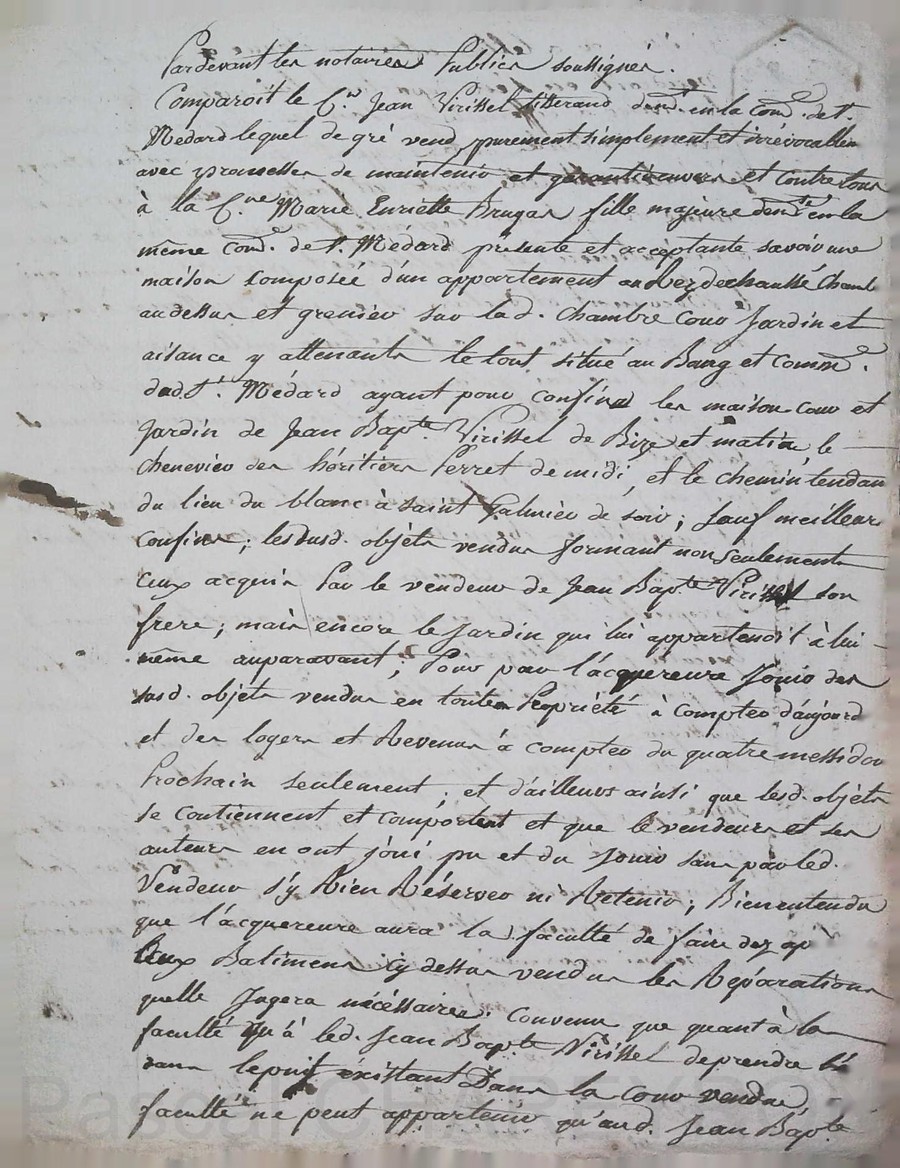 Pardevant les notaires Publics soussignés.
Comparoit le C.en Jean Virissel tisserand dem.t en la Com.e de S.t
Médard lequel de gré vend purement simplement et irrévocablem
avec promesse de maintenir et garantir envers et contre tous
à la C.nne Marie Enriette Brugas fille majeure dem.te en la
même Com.e de S.t Médard présente et acceptante savoir une
maison Composée d'un appartement au Rez de chaussé Chamb
au dessus et grenier sur lad. Chambre Cour Jardin et
aisance y attenants le tout situé au Bourg et Comm.e
dud. S.t Médard ayant pour confins les maison cour et
Jardin de Jean Bapt.e Virissel de Bize et matin le
chenevier des héritiers Perret de midi, et le chemin tendan
du lieu du blanc à saint Galmier de soir; sauf meilleurs
Confins; lesdusd. objets vendus formant non seulement
ceux acquis Par le vendeur de Jean Bap.te Virissel son
frere; mais encore le Jardin qui lui appartenoit à lui
même auparavant; Pour par l'acquereure Jouir des
susd. objets vendus en toute Propriété à Compter d'aujourd
et des loyers et Revenus à compter du quatre messidor
Prochain seulement; et d'ailleurs ainsi que lesd. objets
se Contiennent et comportent et que le vendeur et ses
auteurs en ont joui pu et du Jouir sans par led.
Vendeur s'y Rien Réserver ni Retenir; Bien entendu
que l'acquereure aura la faculté de faire dez ap
Ceux Batimens cy dessus vendus les Réparations
quelle Jugera nécéssaire. Convenu que quant à la
faculté qu'à led. Jean Bapte Virissel de prendre
dans le puit existant Dans la cour vendue
faculté ne peut appartenir qu'aud. Jean Bapte